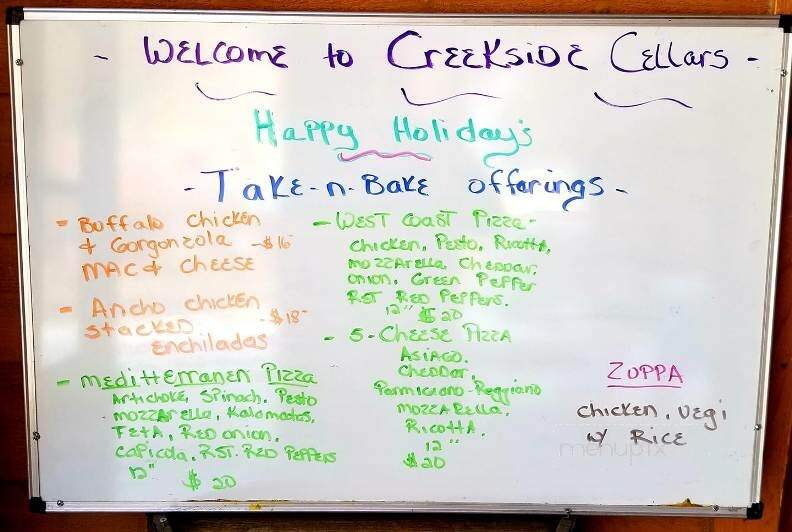 - Welcome to Creekside Cellars -
Happy Holiday's
- Take-n-Bake offerings -
- Buffalo Chicken
& Gorgonzola - $16
Mac & Cheese
- Ancho Chicken
Stacked - $18
Enchiladas
- Mediterranen Pizza
Artichoke, Spinach, Pesto
Mozzarella, Kalamatas,
Feta, Red onion,
Capicola, Rst. Red Peppers
12" $20
- West Coast Pizza -
Chicken, Pesto, Ricotta,
Mozzarella, Cheddar,
Onion, Green Pepper
Rst Red Peppers.
12" $20
- 5-Cheese Pizza
Asiago,
Cheddar,
Parmiciano-Reggiano
Mozzarella,
Ricotta.
12"
$20
Zuppa
Chicken, Vegi
w/ Rice
menupix